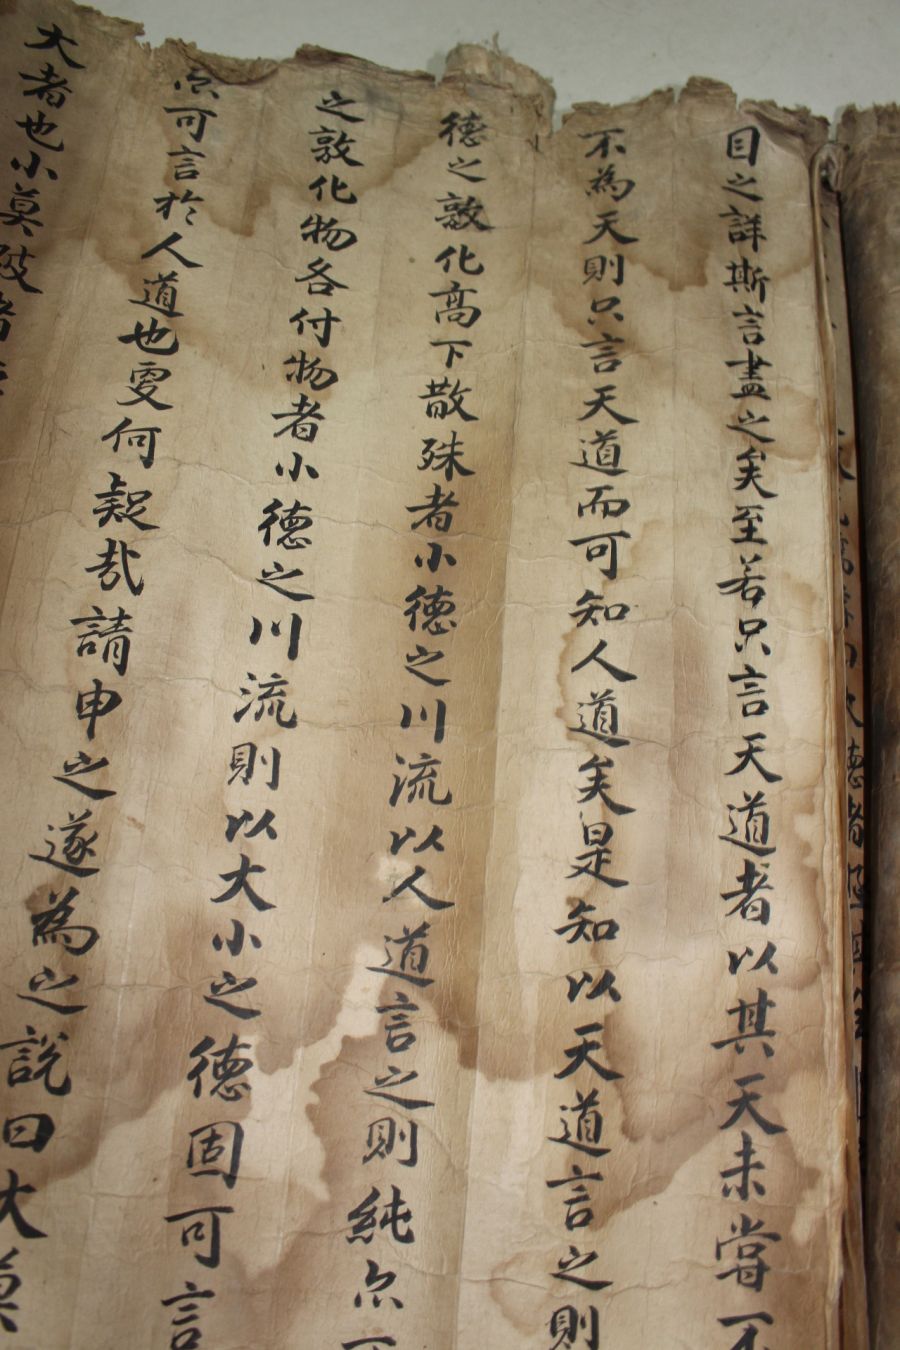 目之詳斯言盡之矣至若只言天道者以其天未嘗不
不為天則只言天道而可知人道矣是知以天道言之則
德之敦化高下散殊者小德之川流以人道言之則純尒
之敦化物各付物者小德之川流則以大小之德固可言
尒可言於人道也更何疑哉請申之遂為之說曰大莫
大者也小莫破者